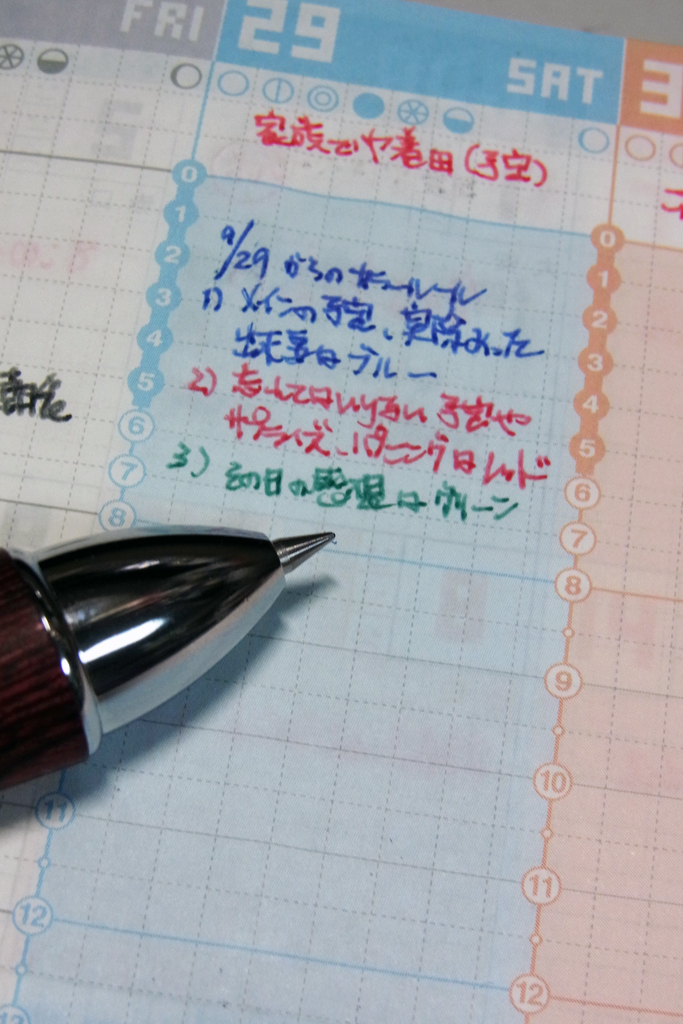 FRI
29
SAT
3
家族で (予定)
0
1
2
3
4
5
6
7
8
11
12
9/29 からの
1) メインの予定、実際あった
出来事はブルー
2) 忘れてはいけない予定や
サプライズ、 はレッド
3) その日の感想はグリーン
0
1
2
3
4
5
6
7
8
9
10
11
12